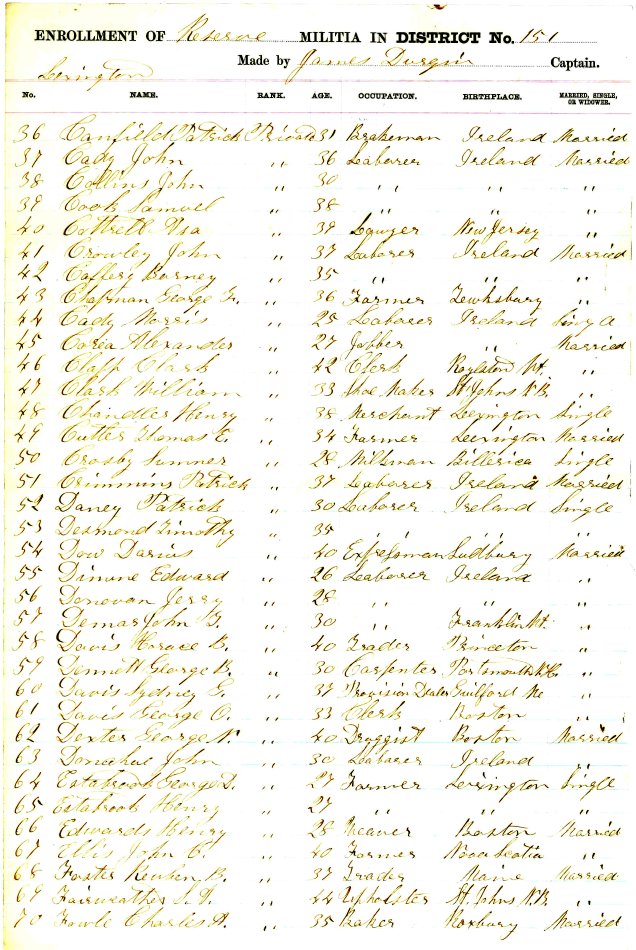 ENROLLMENT OF Reserve MILITIA IN DISTRICT No. 151
Made by James Durgin Captain.
Lexington
No. NAME. RANK. AGE. OCCUPATION. BIRTHPLACE. MARRIED, SINGLE, OR WIDOWER.
36 Canfield Patrick Private 31 Brakeman Ireland Married
37 Cady John " 36 Leaborer Ireland Married
38 Collins John " 30 " " "
39 Cook Samuel " 38 " "
40 Cottrell Asa " 39 Lawyer New Jersey "
41 Crowley John " 37 Laborer Ireland Married
42 Caffery Barney " 35 " " "
43 Chapman George Jr. " 36 Farmer Tewksbury "
44 Cady Morris " 25 Leaborer Ireland Single
45 Corea Alexander " 27 Jobber " Married
46 Clapp Clark " 42 Clerk Royalston Vt. "
47 Clark William " 33 Shoe Maker St. Johns N.B. "
48 Chandler Henry " 38 Merchant Lexington Single
49 Cutler Thomas E. " 34 Farmer Lexington Married
50 Crosby Sumner " 28 Milkman Billerica Single
51 Crimmins Patrick " 37 Leaborer Ireland Married
52 Daney Patrick " 30 Leaborer Ireland Single
53 Desmond Timothy " 35 " " "
54 Dow Darius " 40 Expressman Sudbury Married
55 Dimme Edward " 26 Leaborer Ireland "
56 Donovan Jerry " 28 " " "
57 Demar John G. " 30 " Franklin Vt. "
58 Davis Horace B. " 40 Trader Princeton "
59 Dennett George B. " 30 Carpenter Portsmouth N.H. "
60 Davis Sydney G. " 37 Provision Dealer Guilford Me "
61 Davis George O. " 33 Clerk Boston "
62 Dexter George N. " 40 Druggist Boston Married
63 Donachue John " 30 Leaborer Ireland "
64 Estabrook George L. " 27 Farmer Lexington Single
65 Estabrook Henry " 27 " " "
66 Edwards Henry " 28 Weaver Boston Married
67 Ellis John C. " 40 Farmer Nova Scotia "
68 Foster Reuben B. " 37 Trader Mane Married
69 Fairweather S. T. " 44 Upholster St. Johns N.B. "
70 Fowle Charles A. " 35 Baker Roxbury Married